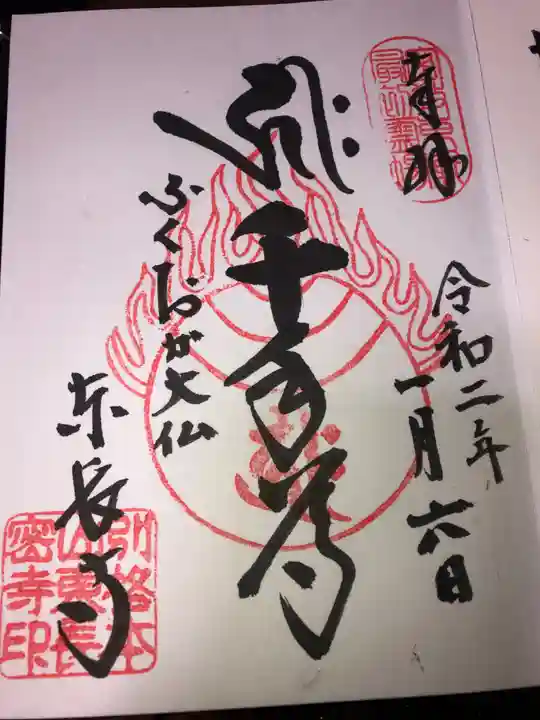 奉拝
令和二年
一月六日
千手尊
ふくおか大仏
東長寺
別格本
山東長
密寺印